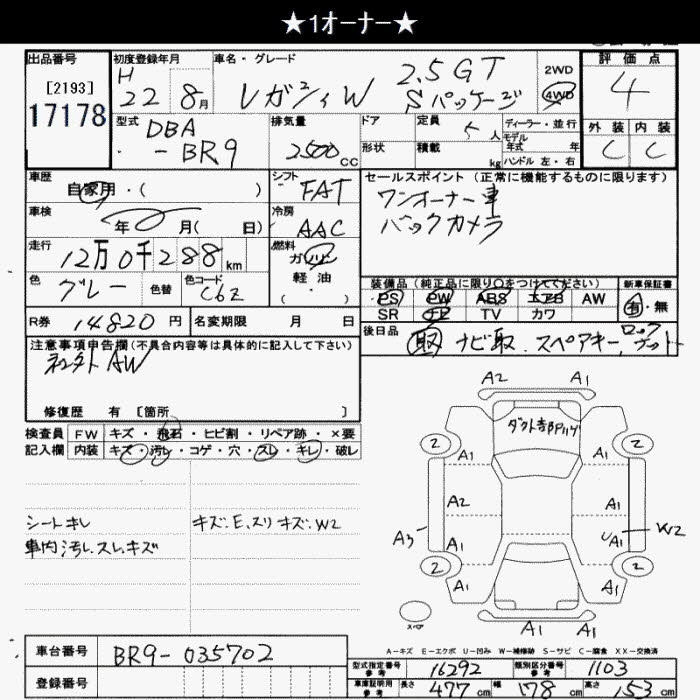 ★1オーナー★
出品番号 初度登録年月 車名・グレード 評価点
[2193]
17178
H 22 8月 レガシィW 2.5GT Sパッケージ 2WD 4WD 4
外装 内装
C C
型式 DBA - BR9 排気量 2500cc ドア 形状 定員 5人 積載 kg ディーラー・並行 モデル年式 年 ハンドル 左・右
車歴 自家用・( )
シフト FAT
セールスポイント (正常に機能するものに限ります)
ワンオーナー車
バックカメラ
車検 年 月( 日)
冷房 AAC
走行 12万0千288km
燃料 ガソリン 軽油 ( ・ )
色 グレー 色替 色コード C6Z
装備品(純正品に限り○をつけてください) 新車保証書
PS PW ABS エアB AW 有・無
SR TV カワ
R券 14820円 名変期限 月 日
後日品 取 ナビ取 . スペアキー, ロックナット
注意事項申告欄(不具合内容等は具体的に記入して下さい)
社外AW
修復歴 有 [箇所 ]
検査員 FW キズ・飛石・ヒビ割・リペア跡・×要
記入欄 内装 キズ・汚レ・コゲ・穴・スレ・キレ・破レ
シートキレ キズ.E.スリキズ.W2
車内汚レ.スレ.キズ
A2 A1
ダクト部Pハゲ
2 2
A1 A1
A2 A1
A3 W2
A1 UA1
2 2
A1 A1
スペア
A1 A1
A-キズ E-エクボ U-凹み W-補修跡 S-サビ C-腐食 XX-交換済
車台番号 BR9-035702
登録番号
型式指定番号 参考 16292 類別区分番号 参考 1103
車庫証明用 参考 長さ 477cm 幅 178cm 高さ 153cm